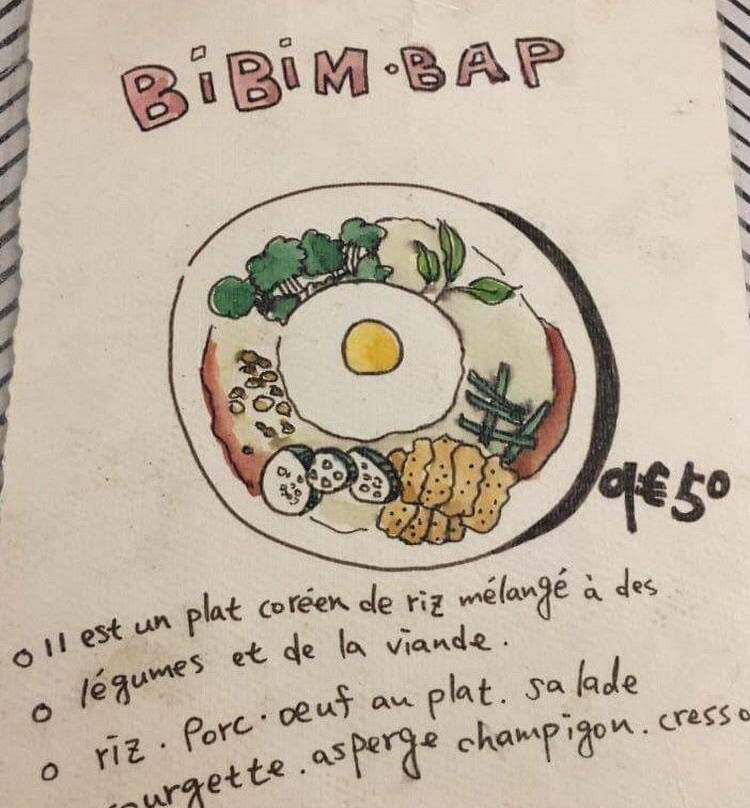 BiBiM·BAP
9€50
o Il est un plat coréen de riz mélangé à des
o légumes et de la viande.
o riz. Porc. oeuf au plat. salade
ourgette. asperge champigon. cresso